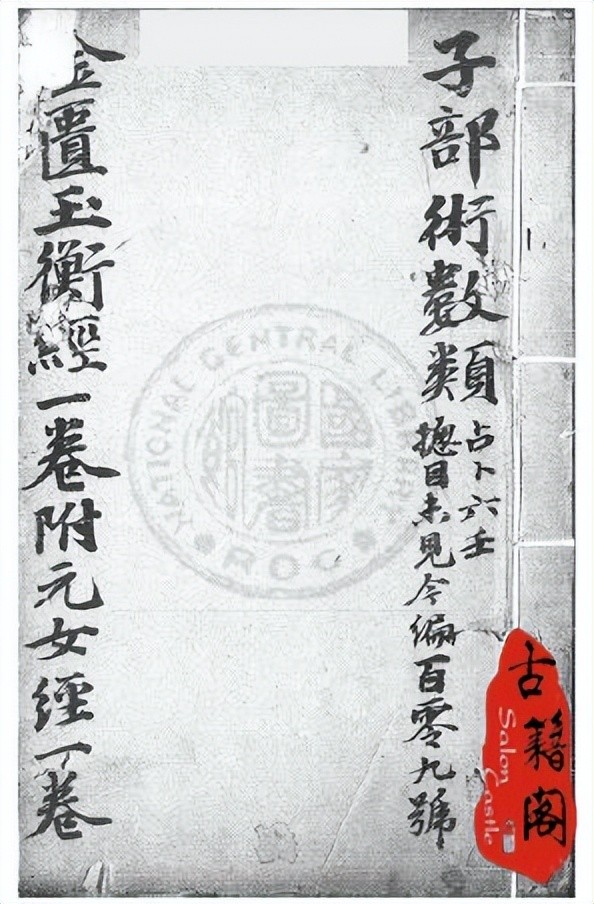 子部術數類
占卜六壬
揔目未見今編百零九號
金匱玉衡經一卷附元女經一卷
NATIONAL CENTRAL LIBRARY
ROC
國家圖書館
古籍阁
Salon Castle